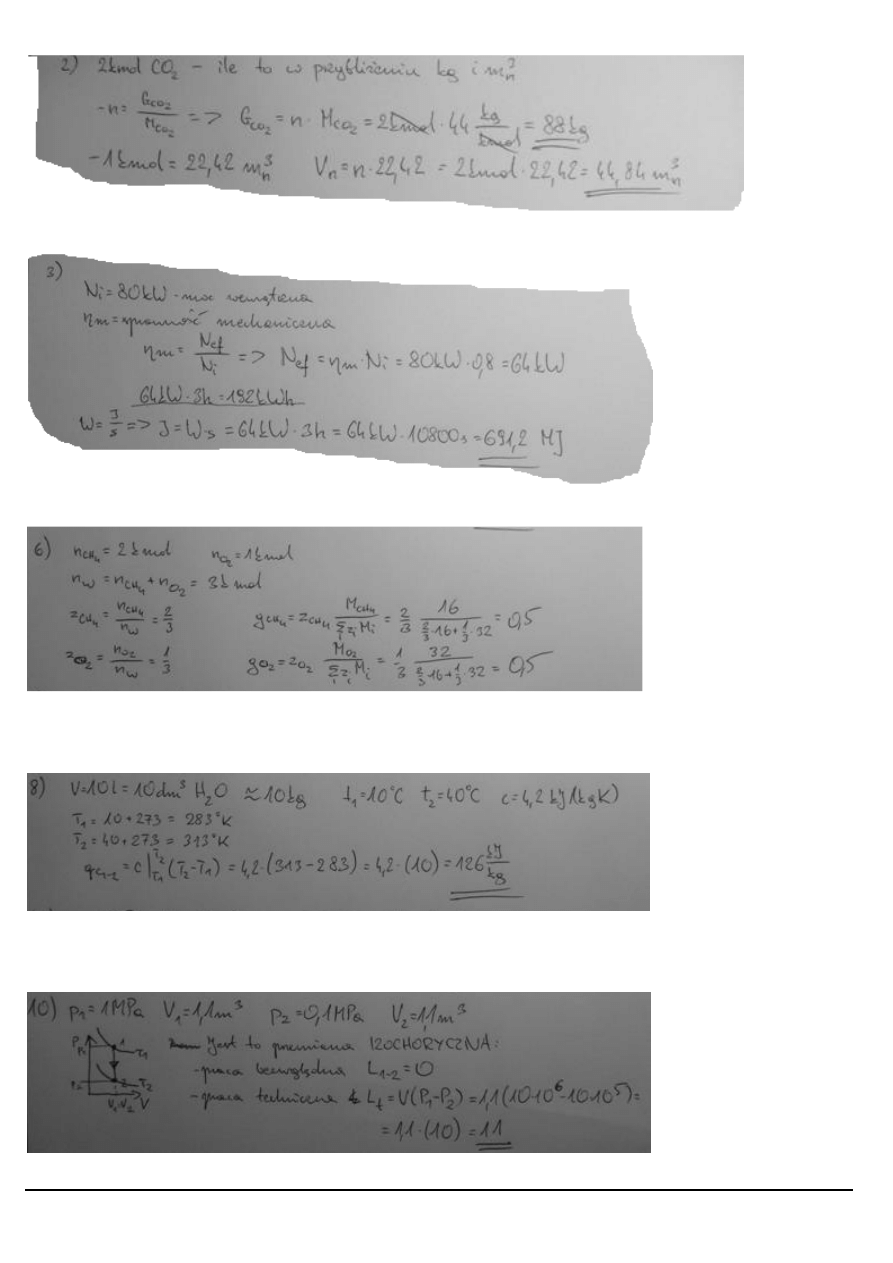 2) 2kmol CO₂ – ile to w przybliżeniu kg i m³ₙ
-n= G_CO₂/M_CO₂ => G_CO₂ = n · M_CO₂ = 2kmol · 44 kg/kmol = 88kg
-1kmol = 22,42 m³ₙ Vₙ = n·22,42 = 2kmol·22,42 = 44,84 m³ₙ
3)
Ni = 80kW - moc wewnętrzna
ηm = sprawność mechaniczna
ηm = Nef/Ni => Nef = ηm·Ni = 80kW·0,8 = 64kW
64kW·3h = 192kWh
W = J/s => J = W·s = 64kW·3h = 64kW·10800s = 691,2 MJ
6) n_CH₄ = 2kmol n_O₂ = 1kmol
n_w = n_CH₄ + n_O₂ = 3kmol
z_CH₄ = n_CH₄/n_w = 2/3 g_CH₄ = z_CH₄ M_CH₄/Σzᵢ Mᵢ = 2/3 16/(2/3·16+1/3·32) = 0,5
z_O₂ = n_O₂/n_w = 1/3 g_O₂ = z_O₂ M_O₂/Σzᵢ Mᵢ = 1/3 32/(2/3·16+1/3·32) = 0,5
8) V=10l = 10dm³ H₂O ≈10kg t₁=10°C t₂=40°C c=4,2 kJ/(kgK)
T₁ = 10+273 = 283°K
T₂ = 40+273 = 313°K
q_c₁₋₂ = c|T₂T₁ (T₂-T₁) = 4,2·(313-283) = 4,2·(10) = 126 kJ/kg
10) p₁=1MPa V₁=1,1m³ p₂=0,1MPa V₂=1,1m³
P
P₁ 1 T₁
Jest to przemiana IZOCHORYCZNA:
-praca bezwzględna L₁₋₂=0
P₂ 2 T₂
V₁=V₂ V
-praca techniczna Lt = V(P₁-P₂) = 1,1(10·10⁶-10·10⁵)=
= 1,1·(10) = 11